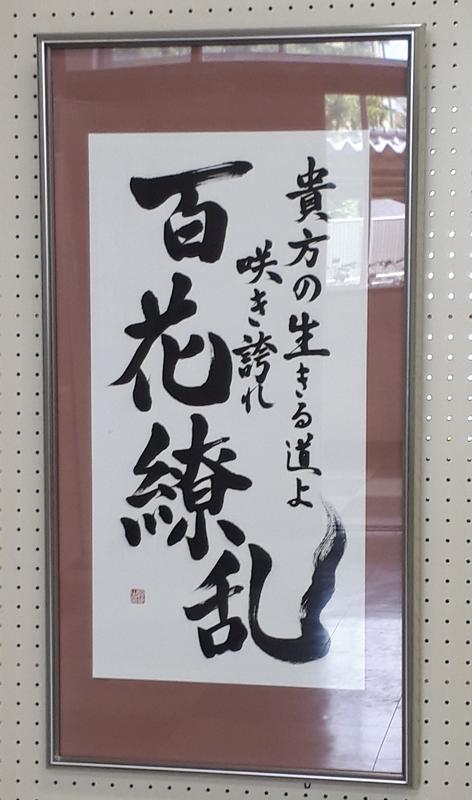 貴方の生きる道よ
咲き誇れ
百花繚乱